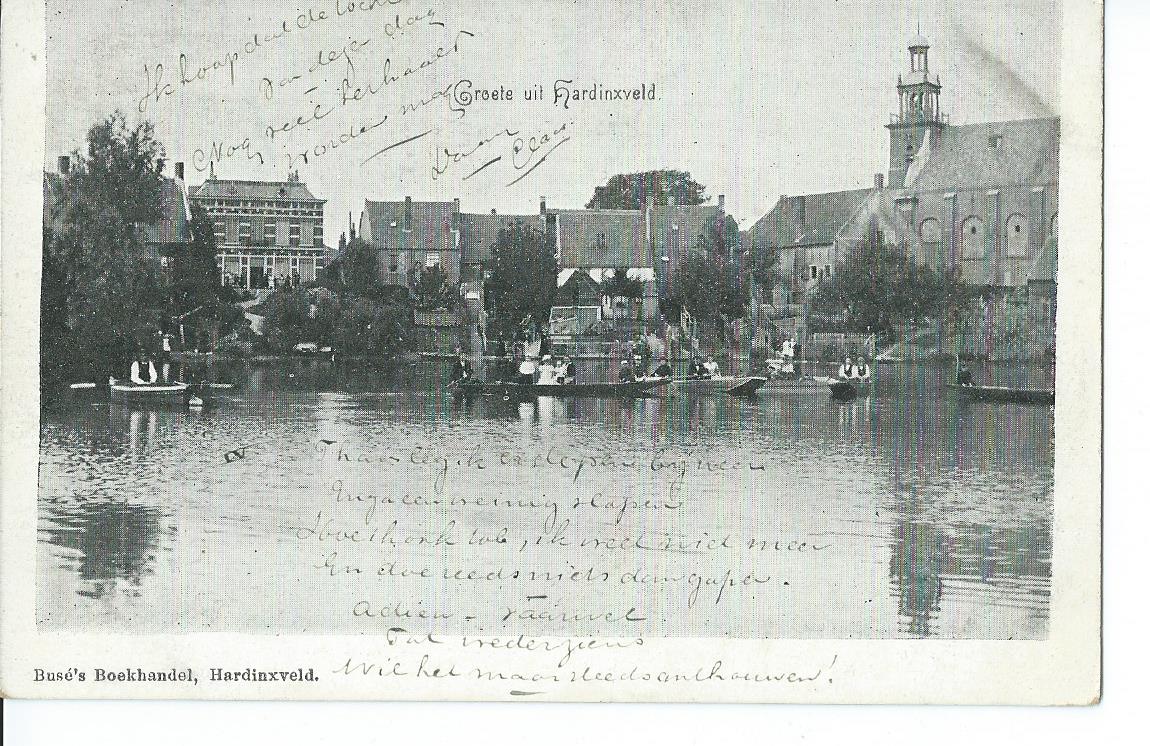 Ik hoop dat de tocht
Van dezen dag
Nog veel herhaald
worden mag
Daan
Claas.
Groete uit Hardinxveld.
IV
Thans leg ik de pen bij neer
En ga een weinig slapen
Hoe ik ook tob, ik weet niet meer
En doe reeds niets dan gapen.
Adieu - vaarwel
Tot wederziens
Wil het maar steeds onthouwen!
Busé's Boekhandel, Hardinxveld.